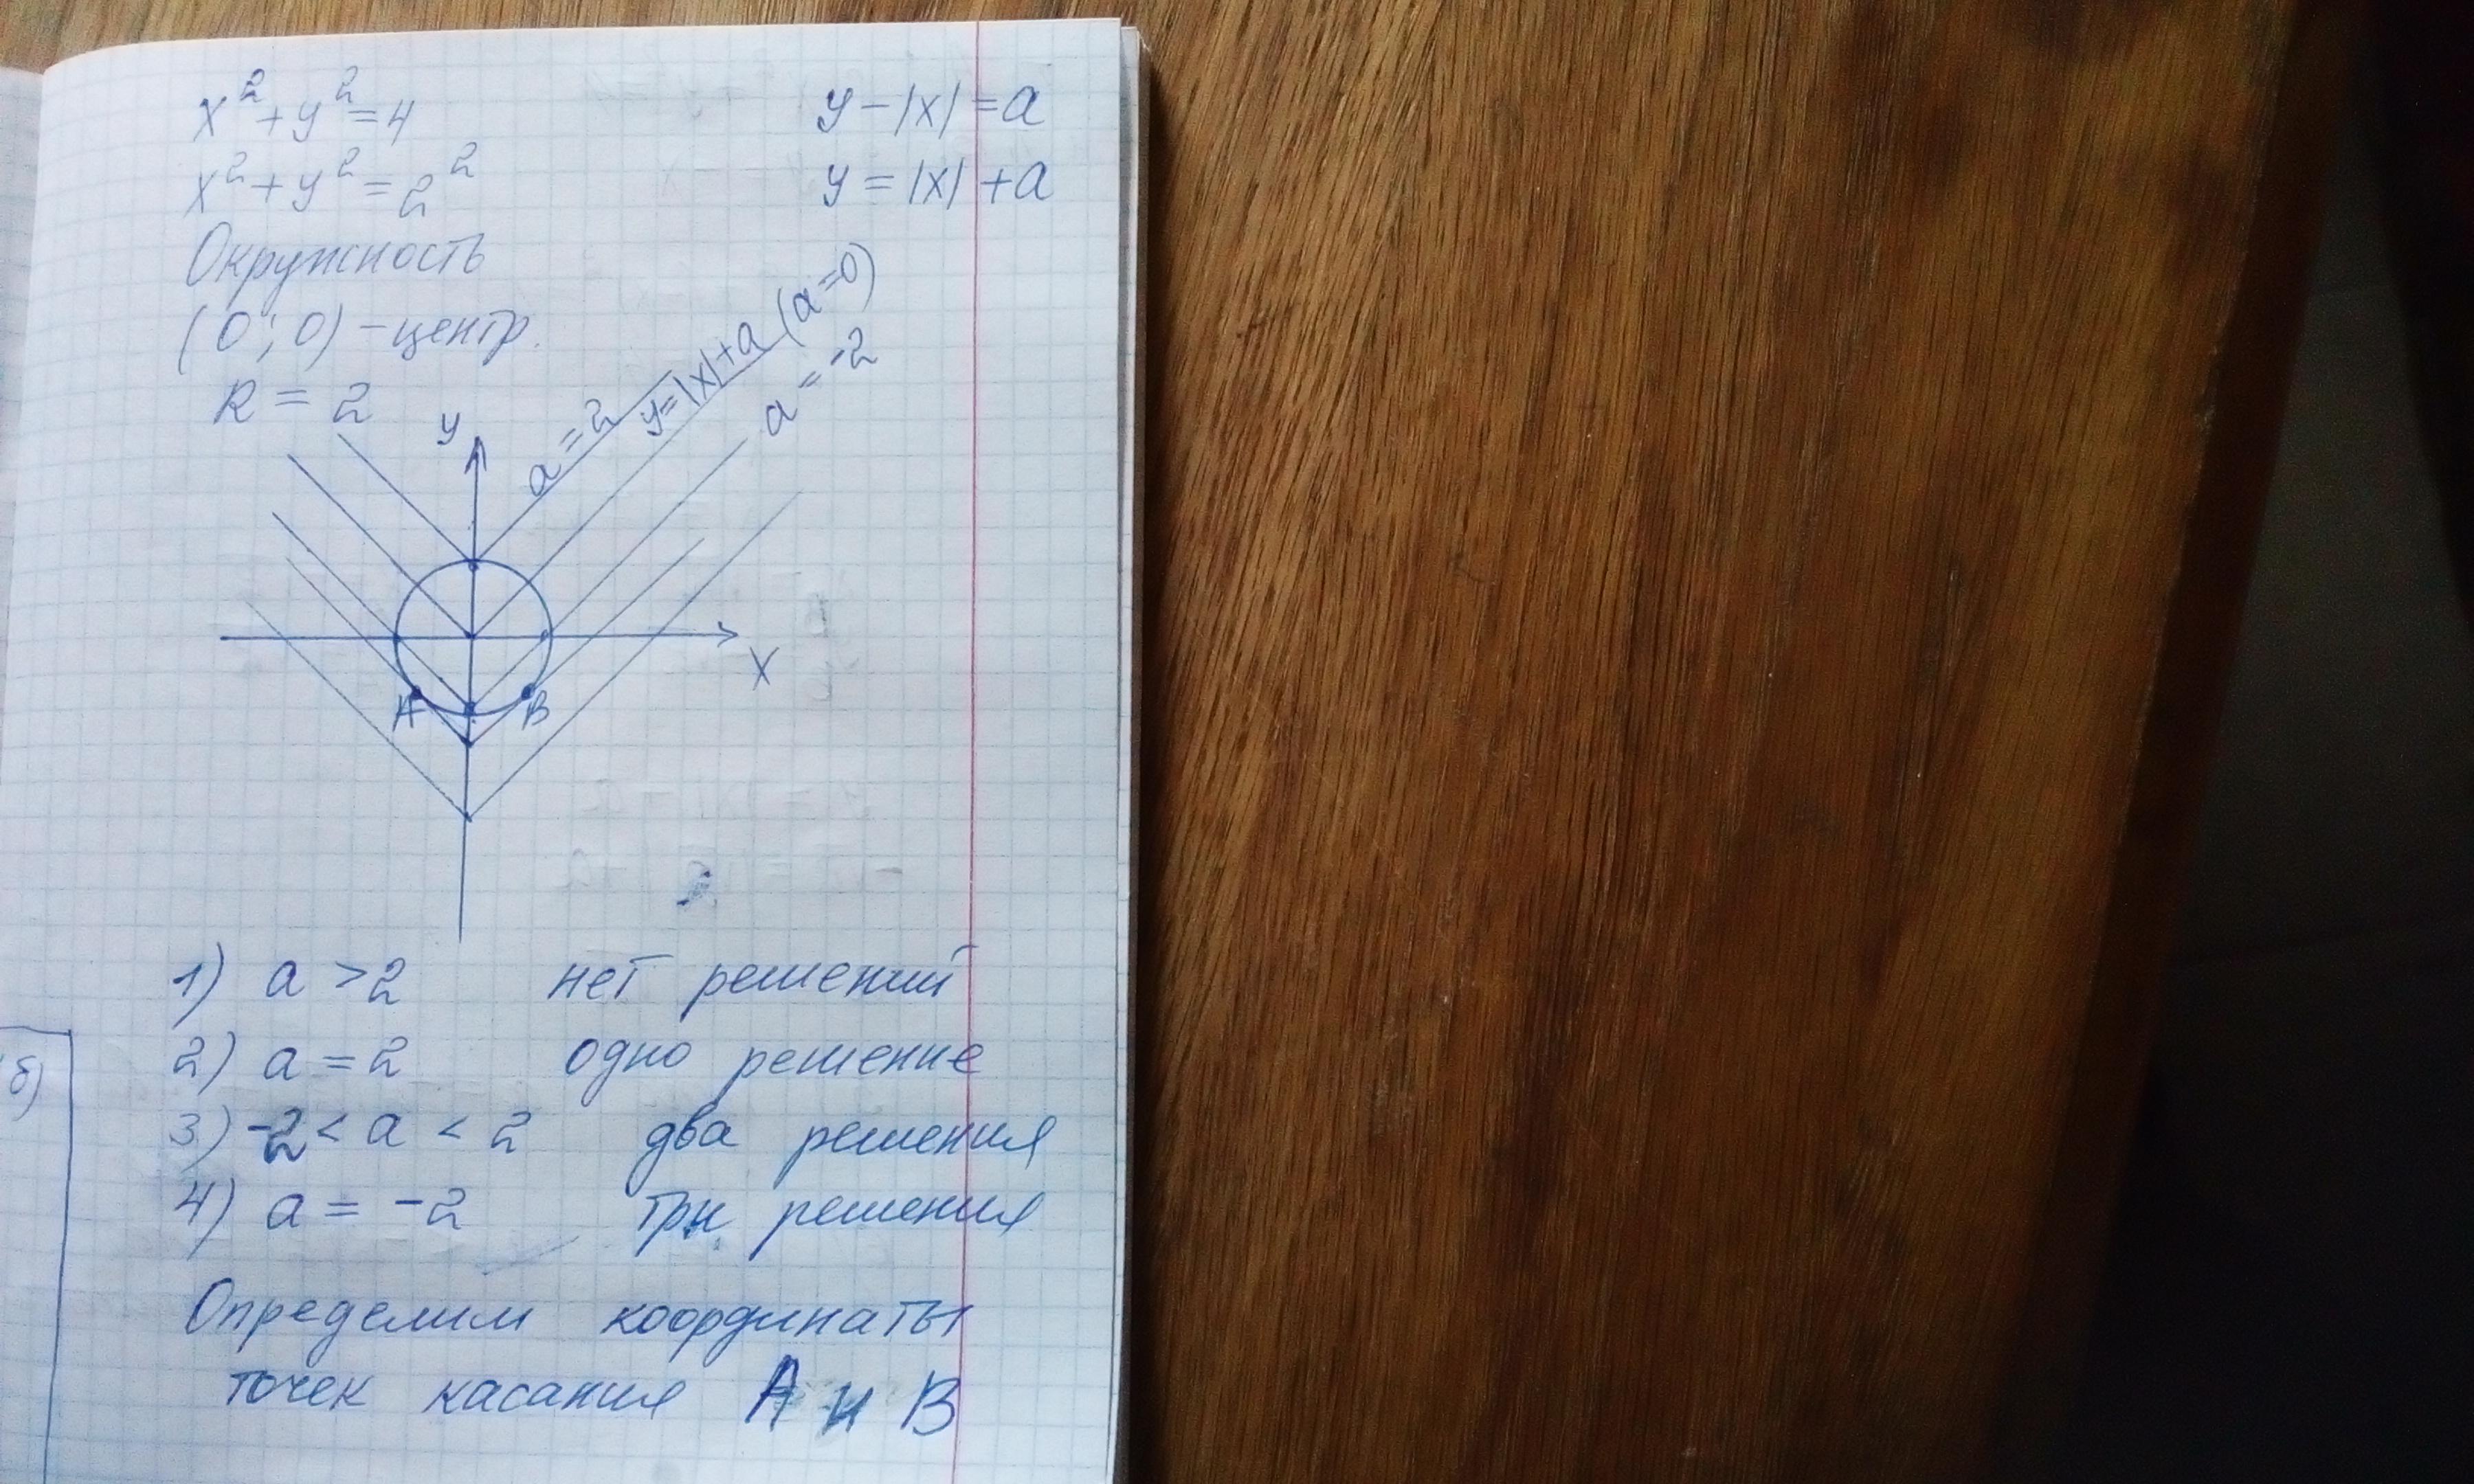 x² + y² = 4
y - |x| = a
x² + y² = 2²
y = |x| + a
Окружность
(0; 0) - центр.
R = 2
y
a = 2
y = |x| + a (a = 0)
a = -2
X
A
B
1) a > 2 нет решений
2) a = 2 одно решение
3) -2 < a < 2 два решения
4) a = -2 три решения
б)
Определим координаты
точек касания A и B